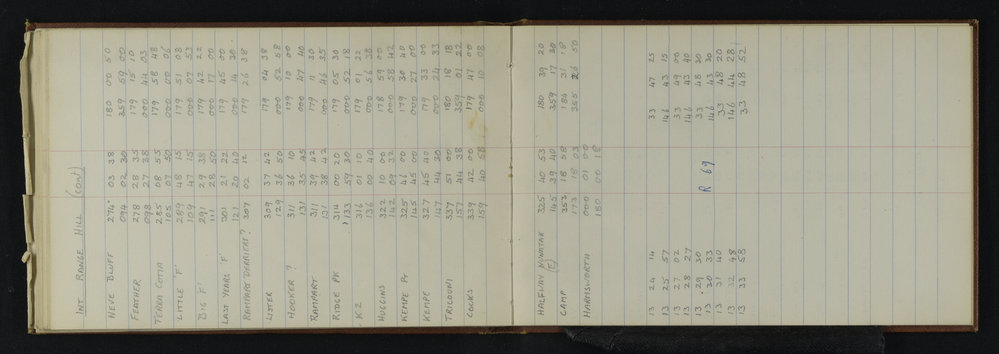 INT RANGE HILL (CONT)
NEVE BLUFF 274° 03 38 180 00 50
094 02 30 359 59 00
FEATHER 278 28 35 179 15 10
098 27 38 000 44 03
TERRA COTTA 285 08 55 179 58 48
105 07 50 000 00 06
LITTLE 'F' 289 48 15 179 51 08
109 47 15 000 07 53
BIG 'F' 291 29 38 179 42 22
111 28 50 000 17 00
LAST YEARS 'F' 301 21 22 179 45 00
121 20 40 000 14 30
RAMPART DERRIERE? 307 02 12 179 26 38
LISTER 309 37 42 179 04 38
129 36 50 000 52 58
HOOKER ? 311 36 10 179 10 00
131 35 45 000 47 40
RAMPART 311 39 42 179 11 30
131 38 42 000 46 35
RIDGE PK 314 00 20 179 05 30
133 59 30 000 52 18
K2 316 01 10 179 01 22
136 00 40 000 56 38
HUGGINS 322 10 00 178 59 00
142 09 32 000 58 42
KEMPE PT 325 46 00 179 30 40
145 45 00 000 27 00
KEMPE 327 45 40 179 33 00
147 44 30 000 24 33
337 51 00 180 18 18
157 44 38 359 01 22
COCKS 339 42 00 179 47 00
159 40 58 000 10 08
HALFWAY NUNATAK 325 40 53 180 39 20
(E) 145 39 40 359 17 30
CAMP 353 18 58 184 31 18
173 18 03 355 26 50
HARMSWORTH 000 01 00
180 00 18
13 24 14 33 47 25
13 25 57 146 43 15
13 27 02 33 49 00
13 28 27 146 43 40
13 29 30 33 48 30
R 69
13 30 33 146 43 30
13 31 40 33 48 20
13 32 48 146 44 28
13 33 58 33 48 52